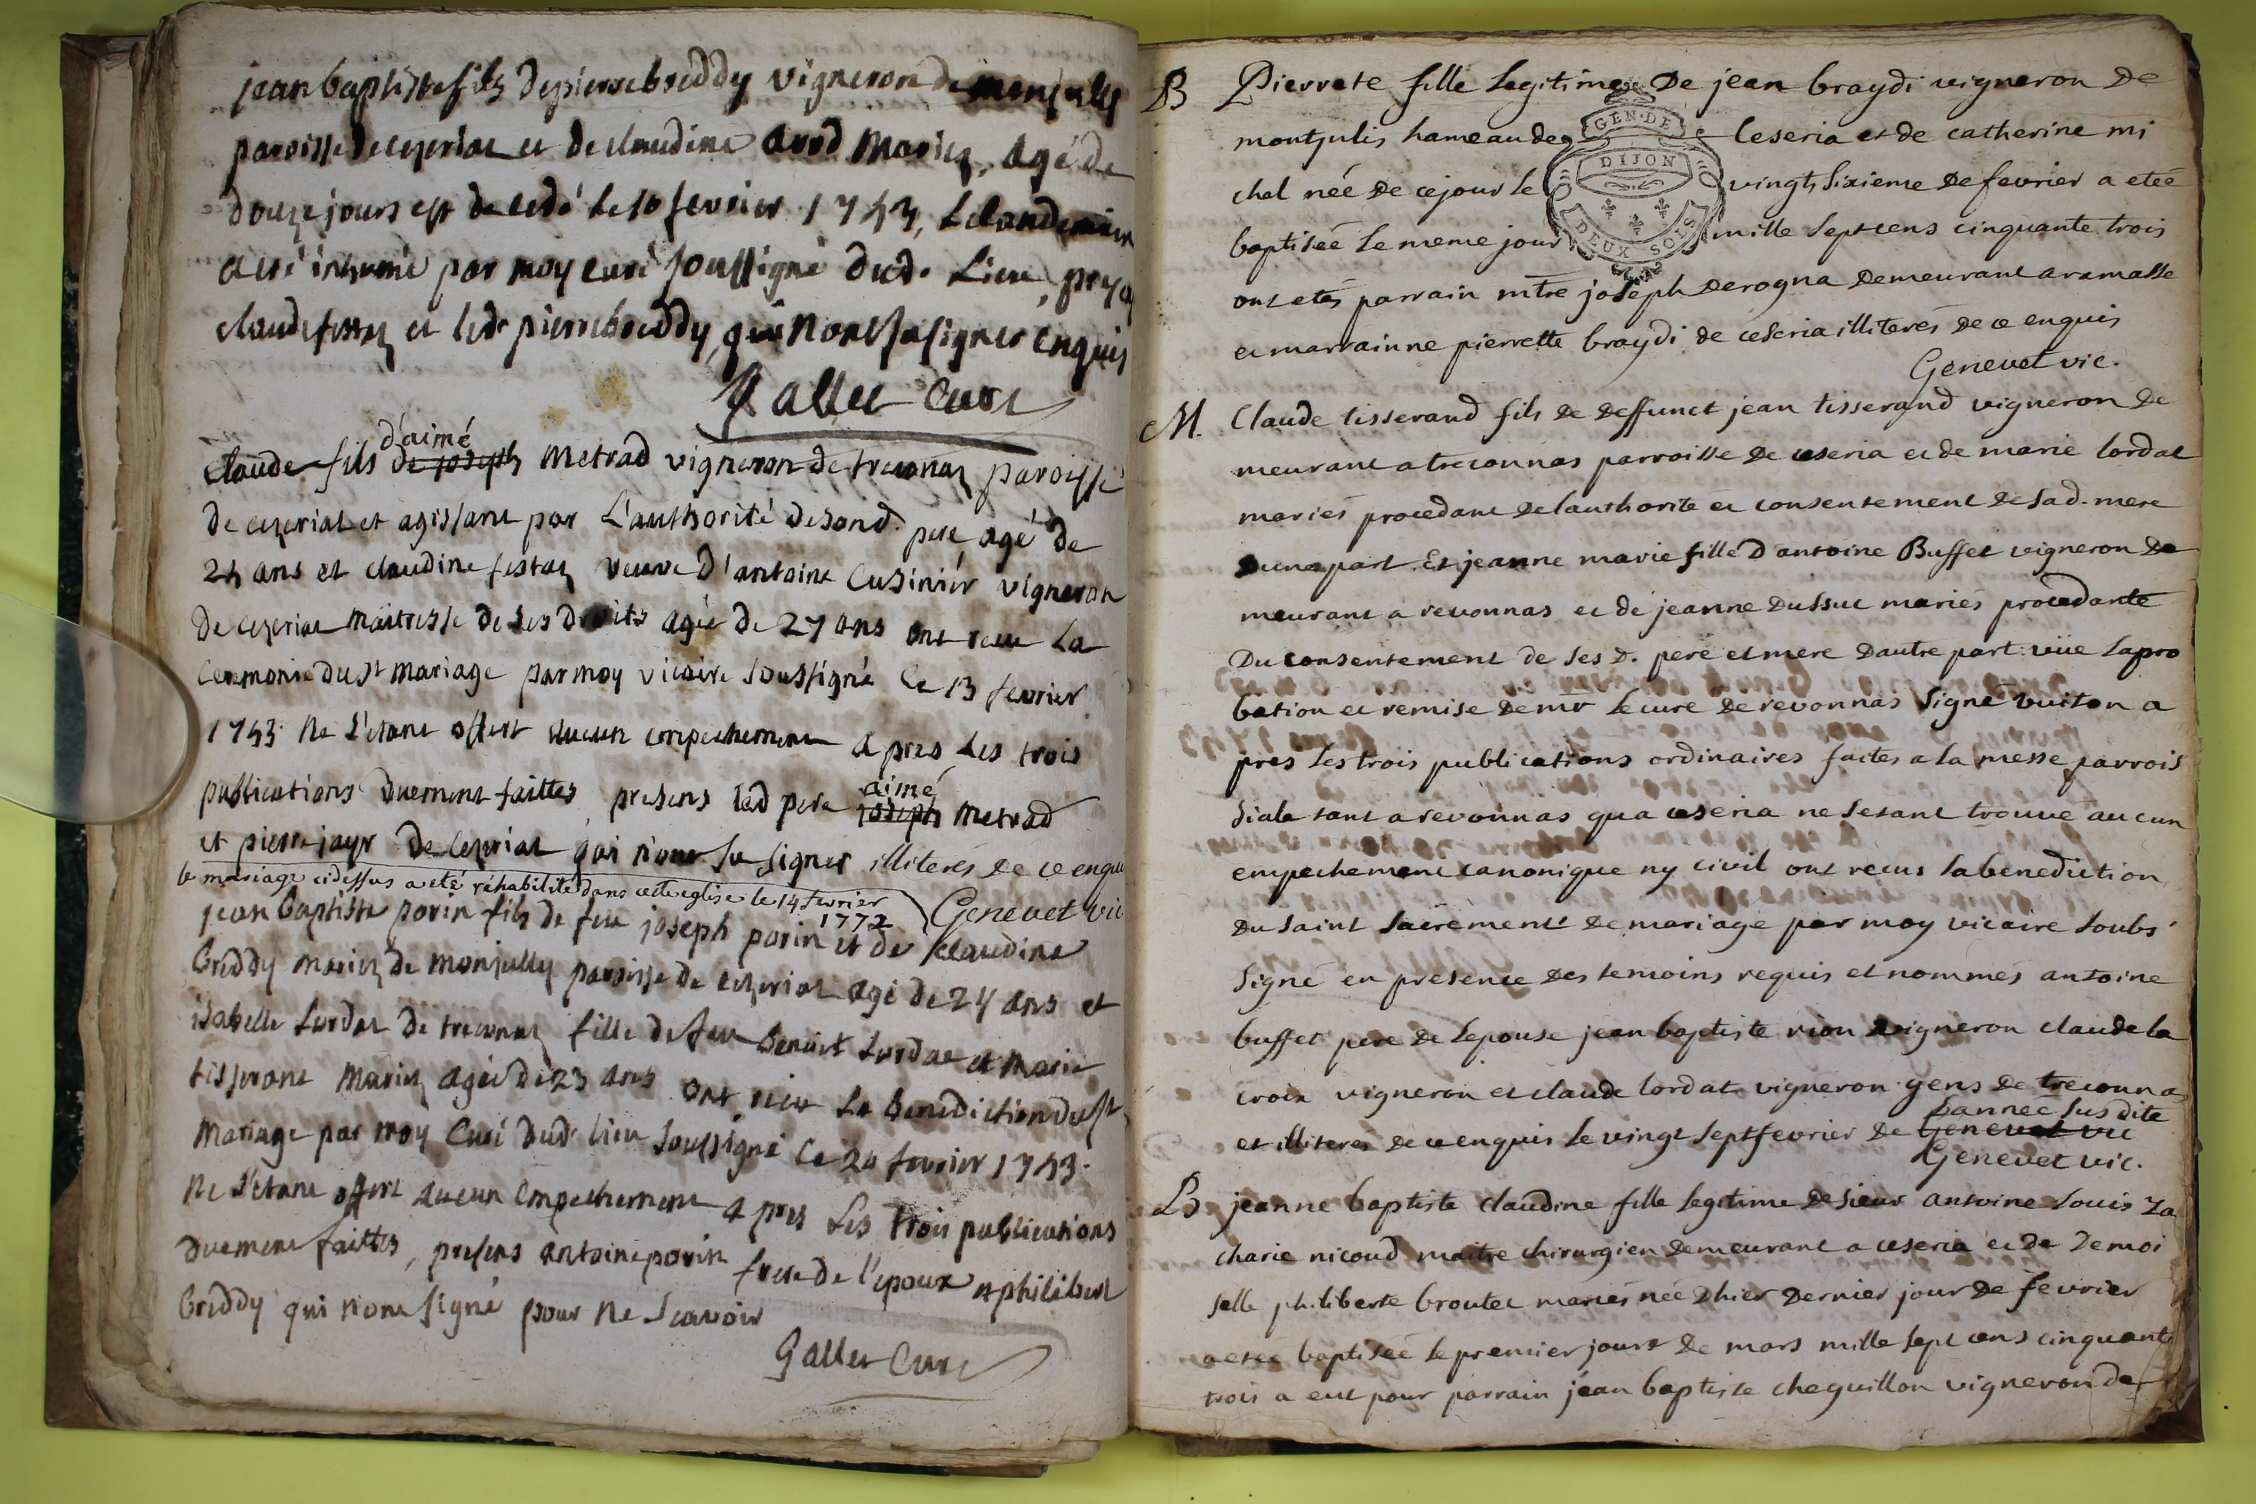 jean baptiste fils de pierre breddy vigneron de monjully
paroisse de cezeriat et de claudine avrd Mariez, agé de
douze jours est decedé le 10 fevrier 1753, Le landemain
a eté inhumé par moy curé soussigné dud. Lieu,
claude festaz et led. pierre breddy, qui n'ont su signer enquis
Gallet Curé
d'aimé
Claude fils de joseph Metrad vigneron de treconnaz paroisse
de cezeriat et agissant par L'authorité de sond. pere agé de
24 ans et claudine festaz veuve d'antoine Cusinier vigneron
de cezeriat maitresse de ses droits agée de 27 ans ont receu La
Ceremonie du st mariage par moy vicaire soussigné Ce 13 fevrier
1753 Ne s'etant offert aucun empechement apres Les trois
publications duement faittes, presens led pere
aimé
joseph Metrad
et pierre jayr de Cezeriat qui n'ont su signer illiterés de ce enquis
le mariage cidessus a eté réhabilité dans cette eglise le 14 fevrier
1772
Genevet vic
jean baptiste porin fils de feu joseph porin et de claudine
breddy mariez de monjully paroisse de cezeriat agé de 24 ans et
isabelle Lordat de treconnaz fille de feu Benoit Lordat et Marie
tisserant Mariez agée de 23 ans ont receu La benediction du st
Mariage par moy Curé dud. lieu soussigné Ce 20 fevrier 1753.
Ne s'etant offert aucun Empechement apres Les trois publications
duement faittes, presens antoine porin frere de l'epoux et philibert
breddy qui n'ont signé pour ne scavoir
Gallet Curé
B Pierrete fille legitime De jean braydi vigneron De
montjulis hameau de ceseria et de catherine mi
chel née de ce jour le vingt sixieme de fevrier a eteé
baptiseé le meme jour mille septcens cinquante trois
ont etés parrain mtre joseph Derogna Demeurant a ramasse
et marrainne pierrette braydi de ceseria illiterés de ce enquis
Genevet vic.
M. Claude tisserand fils de deffunct jean tisserand vigneron De
meurant a treconnas parroisse de ceseria et de marie lordat
mariés procedant de lauthorite et consentement de sad. mere
Dune part Et jeanne marie fille d antoine Buffet vigneron De
meurant a revonnas et de jeanne Dussuc mariés procedante
Du consentement de ses d. pere et mere Dautre part: vüe lapro
bation et remise de mr le curé de revonnas signé vuiton a
pres les trois publications ordinaires faites a la messe parrois
siale tant a revonnas qua ceseria ne setant trouvé aucun
empechement canonique ny civil ont recus la benediction
Du saint sacrement De mariage par moy vicaire soubs
signé en presence des temoins requis et nommés antoine
buffet pere de lepouse jean baptiste rion vigneron claude la
croix vigneron et claude lordat vigneron gens de treconnas
lannee susdite
et illiterés de ce enquis le vingt sept fevrier de Genevet vic
Genevet vic.
B jeanne baptiste claudine fille legitime de sieur antoine louis za
charie nicoud maitre chirurgien demeurant a ceseria et de Demoi
selle philiberte broutet mariés née dhier dernier jour de fevrier
a eteé baptiseé le premier jour de mars mille sept cens cinquante
trois a eut pour parrain jean baptiste cheguillon vigneron de
GEN. DE
DIJON
DEUX SOLS